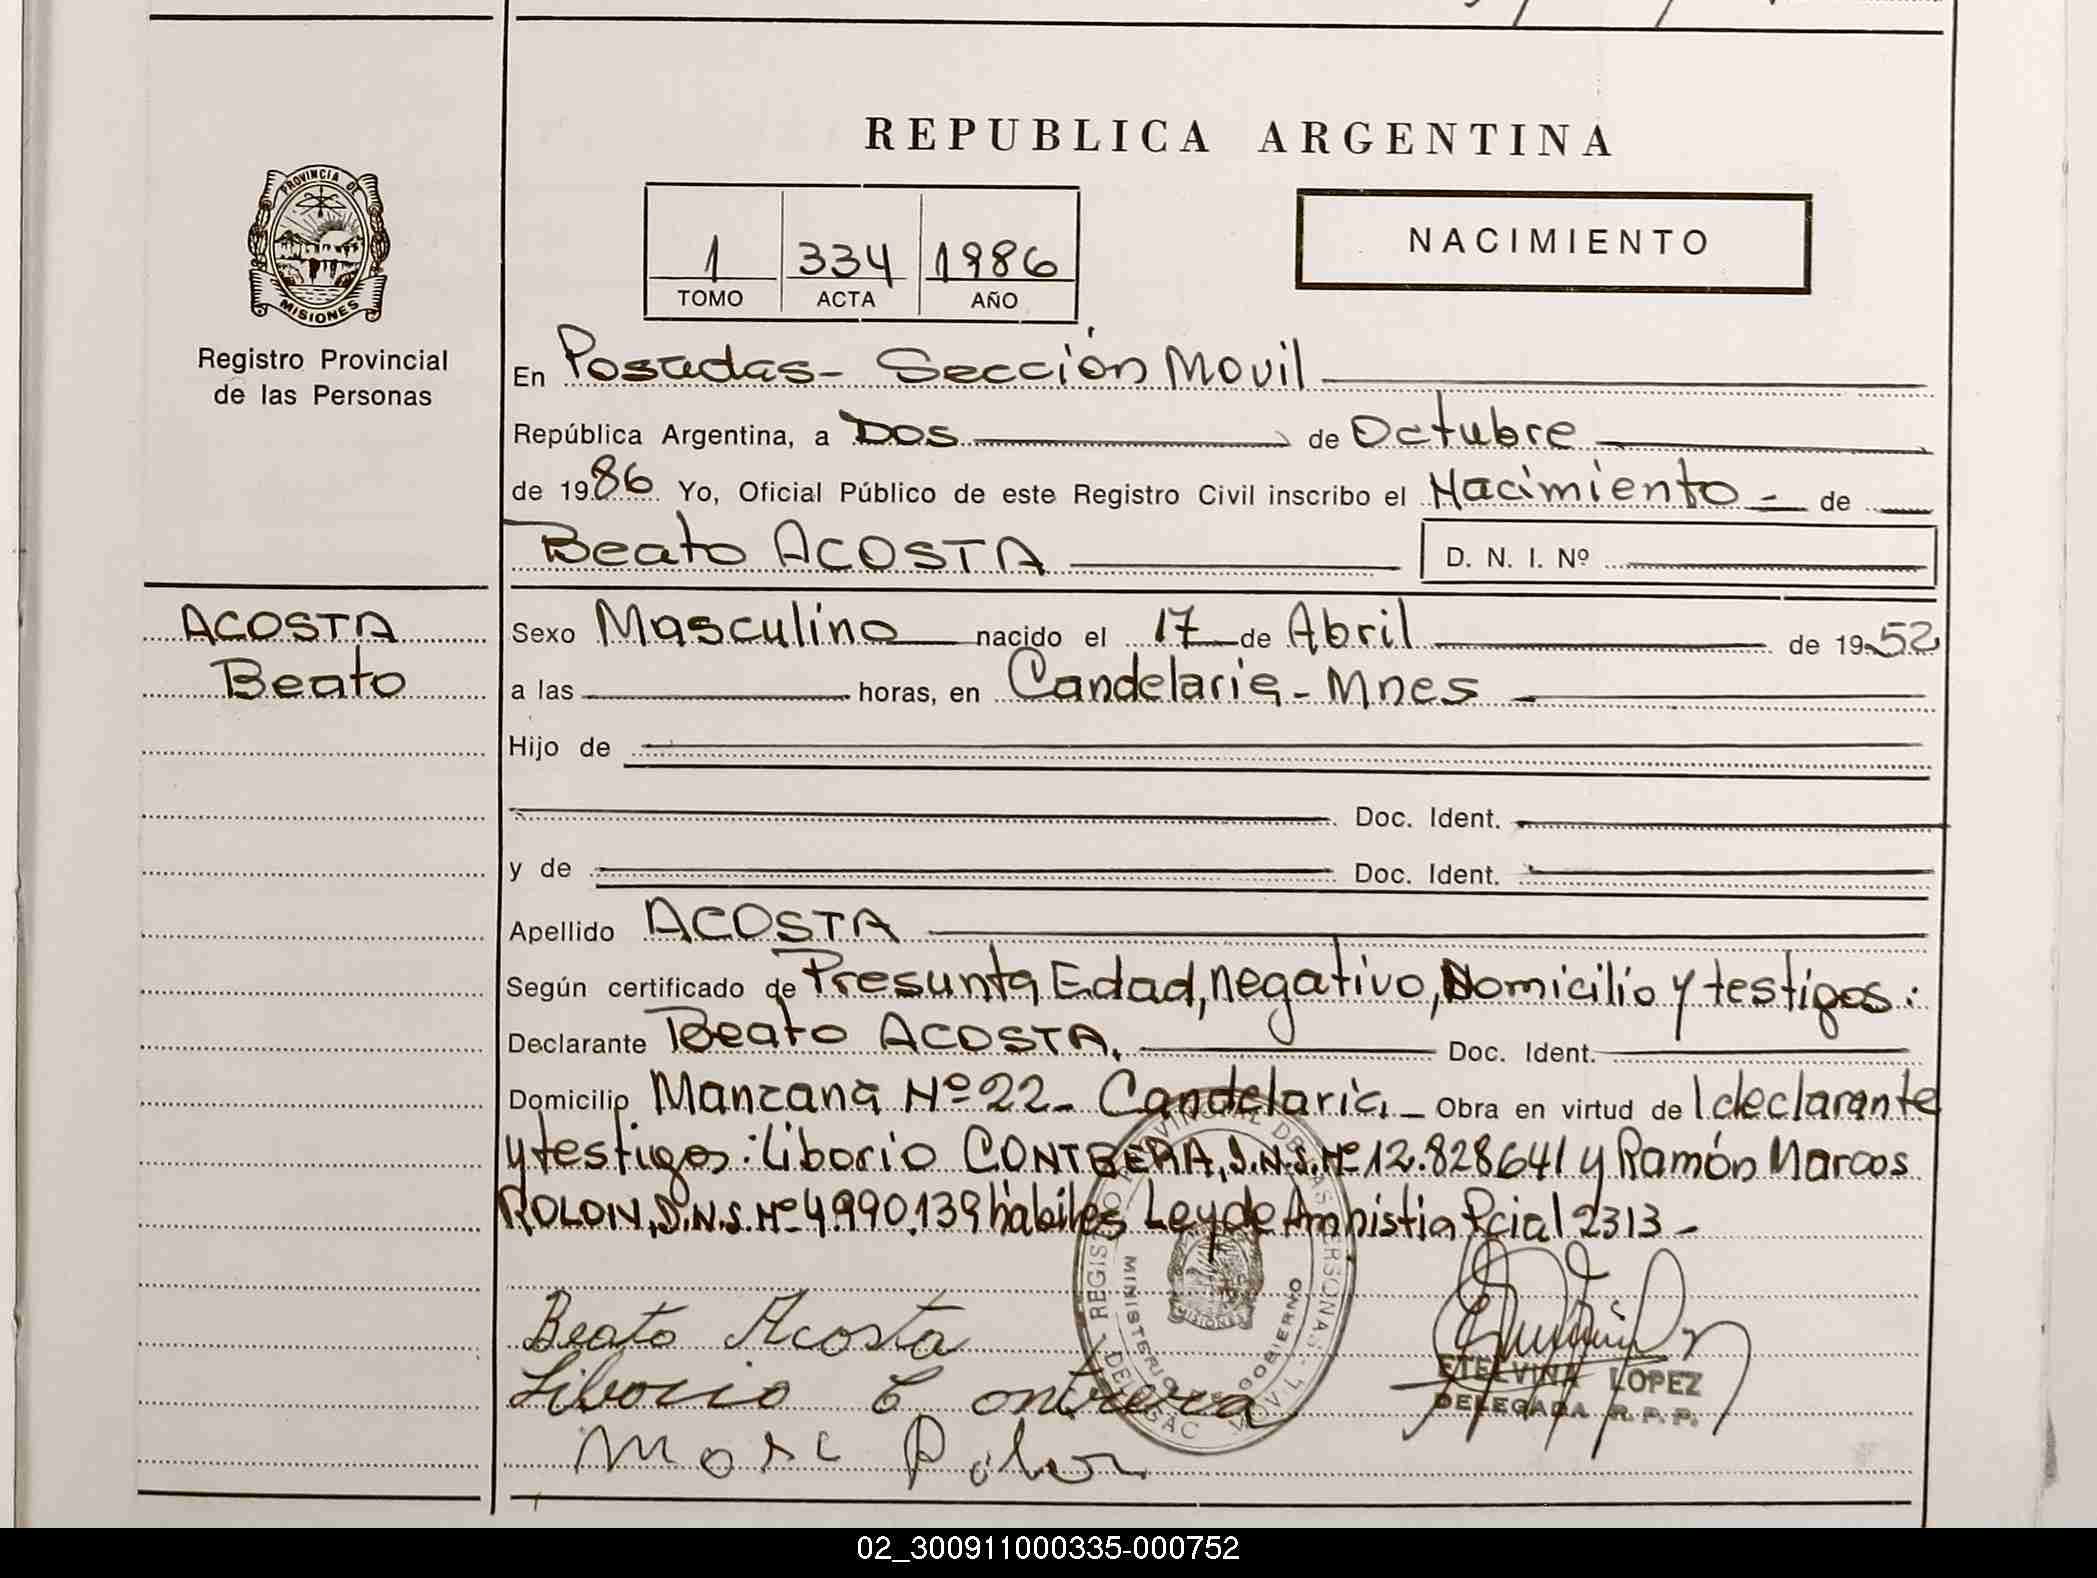 REPUBLICA ARGENTINA
PROVINCIA DE MISIONES
Registro Provincial
de las Personas
1 334 1986
TOMO ACTA AÑO
NACIMIENTO
En Posadas - Sección Movil
República Argentina, a Dos de Octubre
de 1986 Yo, Oficial Público de este Registro Civil inscribo el Nacimiento - de
Beato ACOSTA D. N. I. Nº
ACOSTA
Beato
Sexo Masculino nacido el 17 de Abril de 1952
a las horas, en Candelaria - Mnes
Hijo de
Doc. Ident.
y de Doc. Ident.
Apellido ACOSTA
Según certificado de Presunta Edad, negativo, Domicilio y testigos:
Declarante Beato ACOSTA. Doc. Ident.
Domicilio Manzana Nº 22 - Candelaria - Obra en virtud de l declarante
y testigos: Liborio D.N.I. Nº 12.828641 y Ramón Marcos
D.N.I. Nº 4.990.139 hábiles Ley de Amnistia Pcial 2313 -
REGISTRO PROVINCIAL DE LAS PERSONAS
MINISTERIO DE GOBIERNO
MISIONES
MOVIL
Beato Acosta
Liborio Contrera
ETELVINA LOPEZ
DELEGADA R. P. P.
02_300911000335-000752